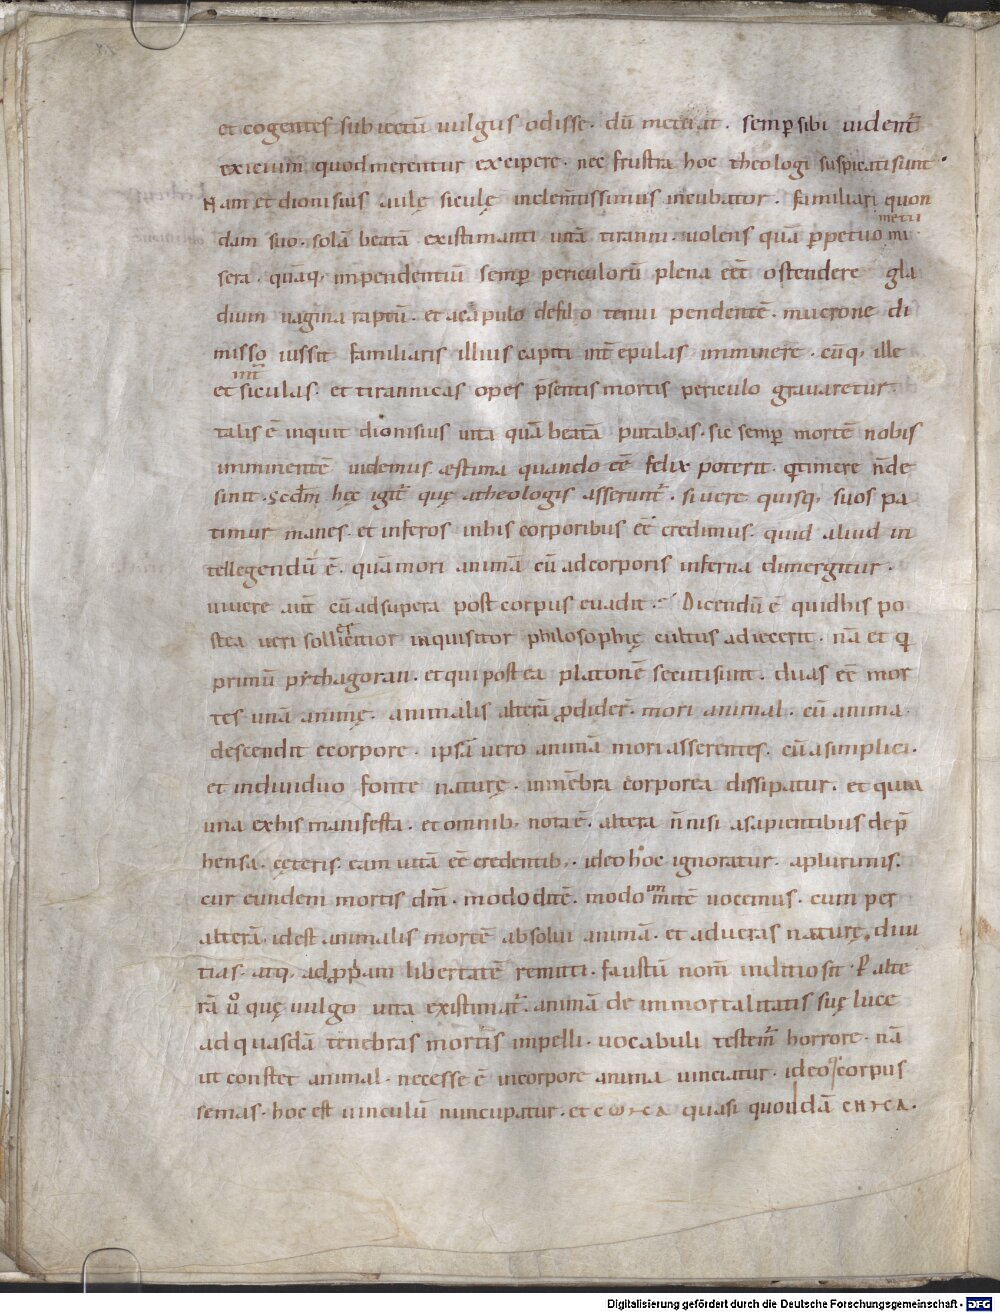 et cogentes subiectū uulgus odisse. dū metuat. semp sibi uident̄
exicium quod merentur excipere. nec frustra hoc theologi suspicati sunt.
Nam et dionisius aulę siculę inclem̄tissimus incubator. familiari quon
metu
dam suo. solā beatā existimanti uitā tiranni. uolens quā p̄petuo mi
sera. quāq; impendentiū semp̄ periculorū plena eēt ostendere gla
dium uagina raptū. et a capulo de filo tenui pendentē. mucrone di
misso iussit familiaris illius capiti int̄ epulas imminere. cūq; ille
int̄
et siculas. et tirannicas opes p̄sentis mortis periculo grauaretur.
talis ē inquit dionisius uita quā beatā putabas. sic semp̄ mortē nobis
imminentē uidemus. æstima quando eē felix poterit. q timere n̄ de
sinit. Scdm̄ hęc igit̄ quę a theologis asserunt̄. si uere quisq; suos pa
timur manes. et inferos in his corporibus eē credimus. quid aliud in
tellegendū ē. quā mori animā cū ad corporis inferna dimergitur.
uiuere aut̄ cū ad supera post corpus euadit. Dicendū ē quid his po
stea ueri sollicitior inquisitor philosophię cultus adiecerit. nā et q
primū pythagoran. et qui post ea platonē secuti sunt. duas eē mor
tes unā animę. animalis alterā p̄dider̄. mori animal. cū anima.
descendit e corpore. ipsā uero animā mori asserentes. cū a simplici.
et indiuiduo fonte naturę. in mēbra corporea dissipatur. et quia
una ex his manifesta. et omnib; nota ē. altera n̄ nisi a sapientibus dep̄
hensa. cęteris. eam uitā eē credentib;. ideo hoc ignoratur. a plurimis.
cur eundem mortis dm̄. modo ditē. modo inmitē uocemus. cum per
alterā. id est animalis mortē absolui animā. et ad ueras naturę diui
tias. atq; ad pp̄am libertatē remitti. faustū nom̄ inditio sit. P alte
rā uo quę uulgo uita existimat̄. animā de immortalitatis suę luce
ad quasdā tenebras mortis impelli. uocabuli testem̄ horrore. nā
ut constet animal. necesse ē in corpore anima uinciatur. ideo corpus
semas. hoc est uinculū nuncupatur. et cωιca quasi quoddā cηιca.
Digitalisierung gefördert durch die Deutsche Forschungsgemeinschaft - DFG